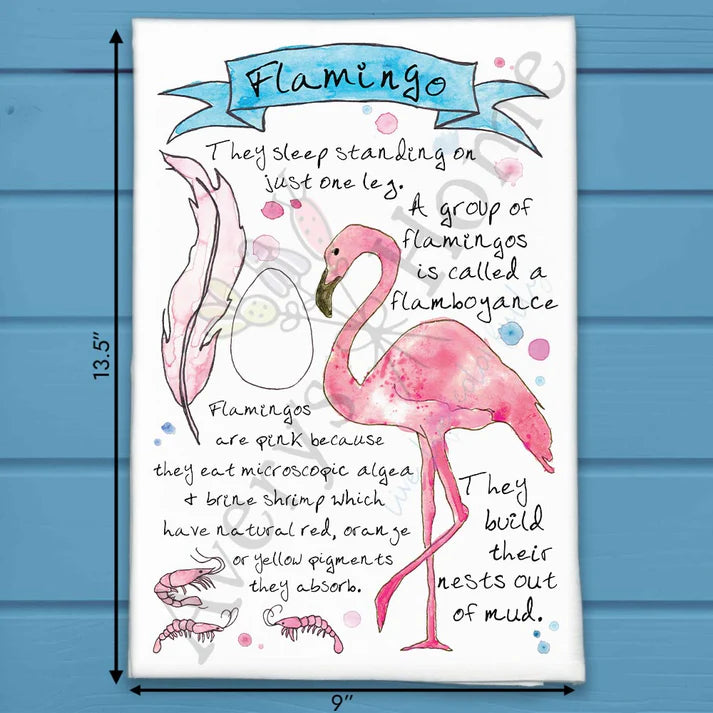 Flamingo
They sleep standing on
just one leg.
A group of
flamingos
is called a
flamboyance
Flamingos
are pink because
they eat microscopic algea
& brine shrimp which
have natural red, orange
or yellow pigments
they absorb.
They
build
their
nests out
of mud.
13.5”
9”
Avery's Home